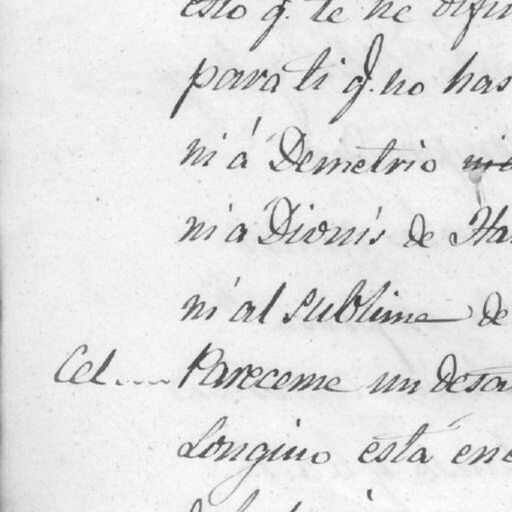 esto q. te he
para ti q. no has
ni á Demetrio
ni a Dionis de
ni al sublime de
Cel.... Pareceme un
Longino está